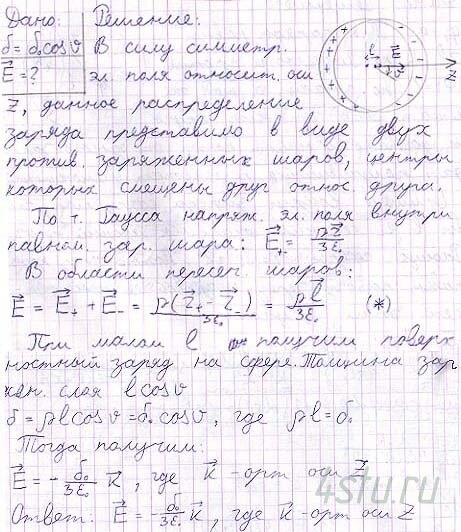 Дано: Решение:
б = б₀cosυ В силу симметр.
E⃗ = ? эл. поля относит. оси
Z, данное распределение
заряда представимо в виде двух
против. заряженных шаров, центры
которых смещены друг относ. друга.
По т. Гаусса напряж. эл. поля внутри
равном. зар. шара: E⃗₊ = ρr⃗/3ε₀
В области пересеч. шаров:
E⃗ = E⃗₊ + E⃗₋ = ρ(r⃗₊ - r⃗₋)/3ε₀ = ρl⃗/3ε₀ (*)
При малом l получим поверх
ностный заряд на сфере. Толщина зар
жен. слоя l cosυ
б = ρl cosυ = б₀cosυ, где ρl = б₀
Тогда получим:
E⃗ = - б₀/3ε₀ k⃗, где k⃗ - орт оси Z
Ответ: E⃗ = - б₀/3ε₀ k⃗, где k⃗ - орт оси Z
l E⃗
υ
Z
4stu.ru